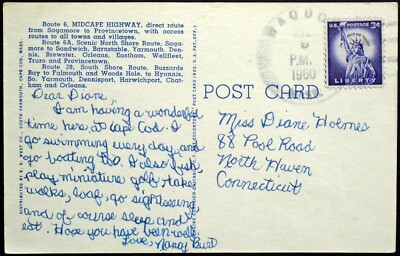 Route 6, MIDCAPE HIGHWAY, direct route
from Sagamore to Provincetown, with access
routes to all towns and villages.
Route 6A, Scenic North Shore Route, Saga-
more to Sandwich, Barnstable, Yarmouth, Dennis,
Brewster, Orleans, Eastham, Wellfleet,
Truro and Provincetown.
Route 28, South Shore Route, Buzzards
Bay to Falmouth and Woods Hole, to Hyannis,
So. Yarmouth, Dennisport, Harwichport, Chat-
ham and Orleans.
Dear Diane,
I am having a wonderful
time here, at Cape Cod. I
go swimming every day, and
go boating too. I also fish,
play miniature golf, take
walks, loaf, go sightseeing
and of course sleep and
eat. Hope you have been well.
Love, Nancy
POST CARD
WAQUOI
P.M.
1960
3¢
LIBERTY
Miss Diane Holmes
88 Pool Road
North Haven
Connecticut